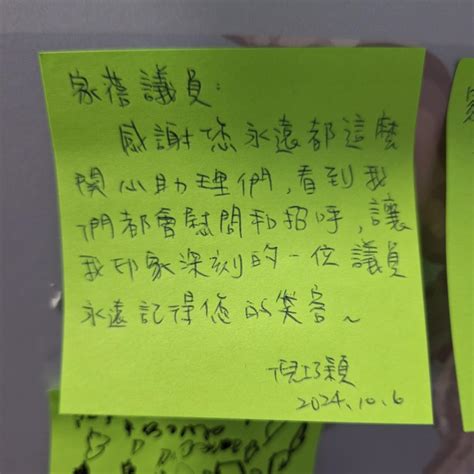 家蓓議員:
感謝您永遠都這麼
關心助理們,看到我
們都會慰問和招呼,讓
我印象深刻的一位議員
永遠記得您的笑容~
倪巧穎
2024.10.6